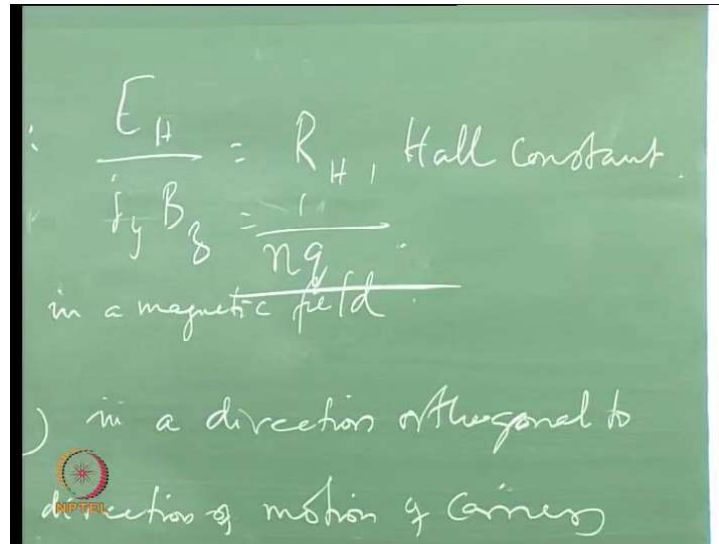 : E_H / j_y B_z = R_H, Hall Constant.
= 1 / nq
in a magnetic field.
) in a direction orthogonal to
direction of motion of Carriers
NPTEL